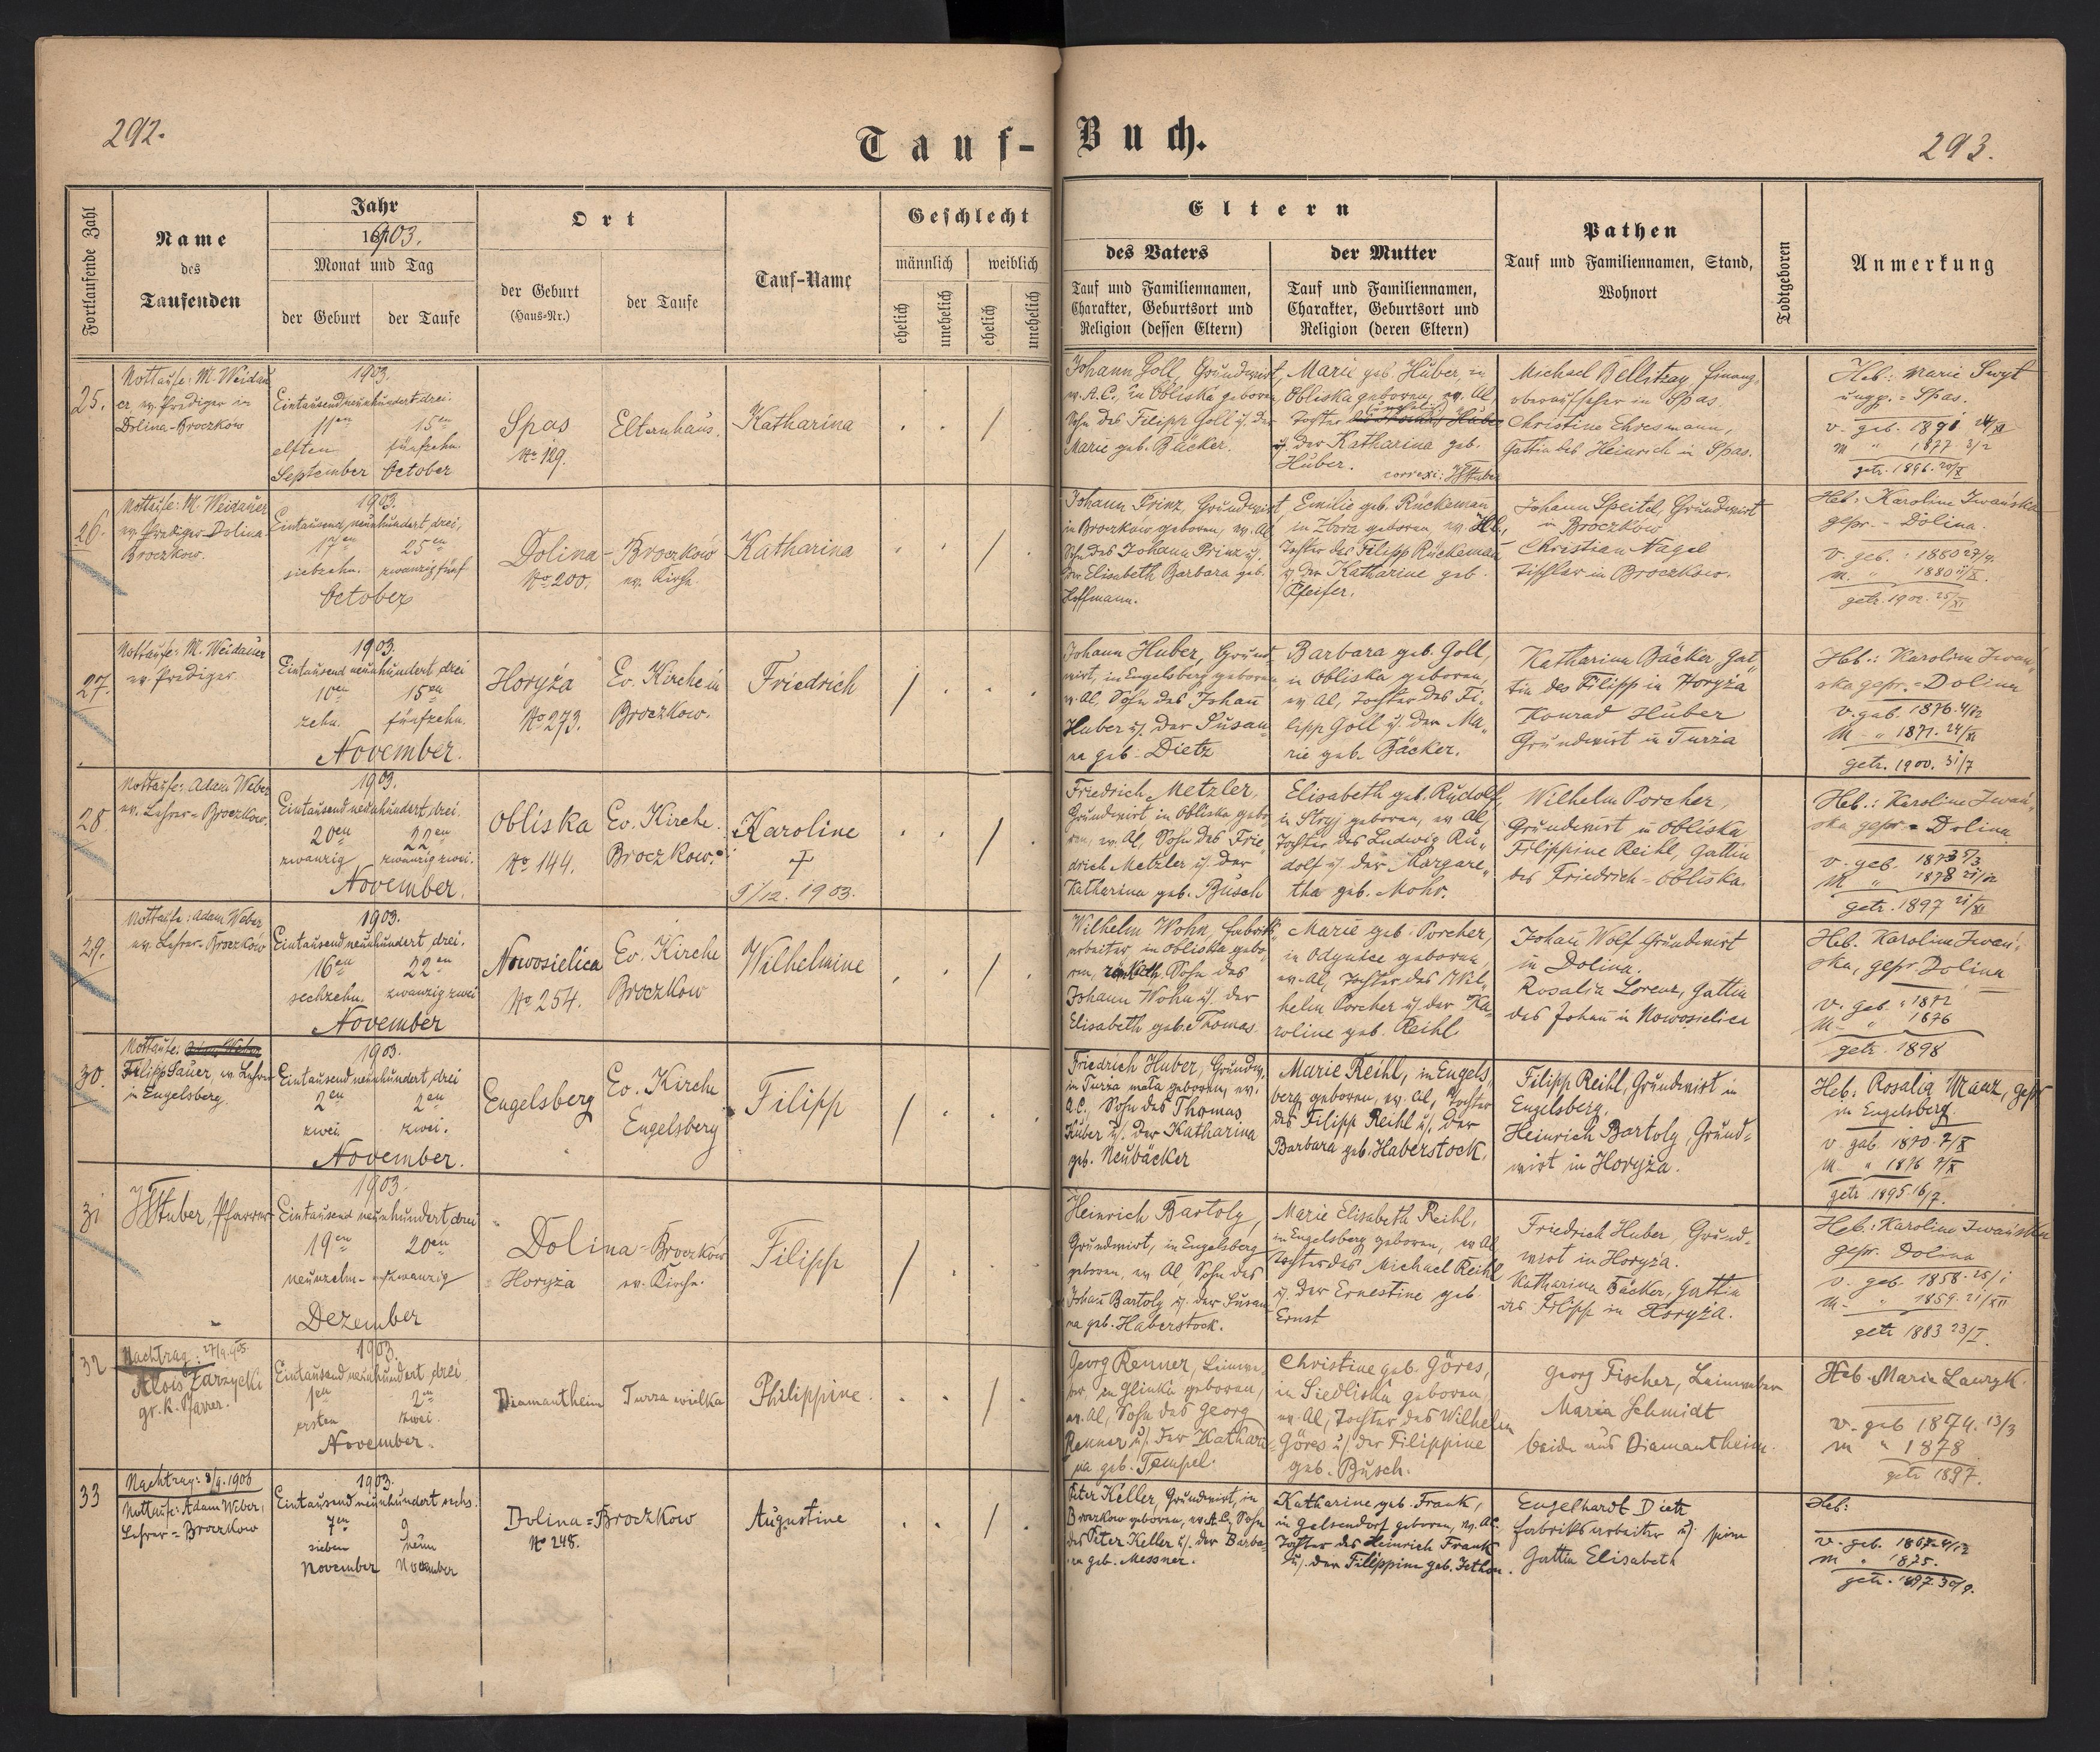 292.
Tauf-
Buch.
293.
Fortlaufende Zahl
Name
des
Taufenden
Jahr
1903.
Monat und Tag
der Geburt
der Taufe
Ort
der Geburt
(Haus-Nr.)
der Taufe
Tauf-Name
Geschlecht
männlich
weiblich
ehelich
unehelich
ehelich
unehelich
Eltern
des Vaters
Tauf und Familiennamen,
Charakter, Geburtsort und
Religion (dessen Eltern)
der Mutter
Tauf und Familiennamen,
Charakter, Geburtsort und
Religion (deren Eltern)
Pathen
Tauf und Familiennamen, Stand,
Wohnort
Todtgeboren
Anmerkung
25.
Nottaufe: M. Weidau
er ev. Prediger in
Dolina-Broczków
1903.
Eintausendneunhundert drei
11en
15en
elften
fünfzehn
September
October
Spas
No 129.
Elternhaus.
Katharina
Johann Goll, Grundwirt,
ev. A.C., in Obliska geboren
Sohn des Filipp Goll u. der
Marie geb. Bäcker.
Marie geb. Huber, in
Obliska geboren, ev. Al,
Tochter
u. der Katharina geb.
Huber.
Michael Bellitzay, Finanz-
oberaufseher in Spas.
Christine Ehresmann,
Gattin des Heinrich in Spas.
Heb.: Marie Swyt
ungp. - Spas.
v. geb. 1891
m " 1877 3/2
getr. 1896.
26.
Nottaufe: M. Weidauer
ev. Prediger Dolina-
Broczkow.
1903.
Eintausend neunhundert drei,
17en
25en
siebzehn.
zwanzigfünf
October
Dolina-
No 200.
Broczków
ev. Kirche.
Katharina
Johann Prinz, Grundwirt
in Broczkow geboren, ev. Al,
Sohn des Johann Prinz u.
der Elisabeth Barbara geb.
Hoffmann.
Emilie geb. Rückemann
in Zborz geboren, ev. Al,
Tochter des Filipp Rückemann
u. der Katharine geb.
Pfeifer.
Johann Speitel, Grundwirt
in Broczków
Christian Nagel
Tischler in Broczkow.
Heb.: Karoline Iwańska
gepr. - Dolina.
v. geb. : 1880 27/9.
m. " 1880 11/X.
getr. 1902. 25/XI
27.
Nottaufe: M. Weidauer
ev. Prediger.
1903.
Eintausend neunhundert drei
10en
15en
zehn.
fünfzehn.
November.
Horyża
No 273.
Ev. Kirche in
Broczkow.
Friedrich
Johann Huber, Grund-
wirt, in Engelsberg geboren
ev. Al, Sohn des Johann
Huber u. der Susan-
na geb. Dietz
Barbara geb. Goll,
in Obliska geboren,
ev Al, Tochter des Fi-
lipp Goll u. der Ma-
rie geb. Bäcker.
Katharina Bäcker, Gat-
tin des Filipp in Horyża
Konrad Huber
Grundwirt in Turza
Heb.: Karoline Iwań-
ska gepr. = Dolina
v. geb. 1876. 4/12
M - " 1871. 24/XI
getr. 1900. 31/7
28.
Nottaufe: Adam Weber
ev. Lehrer = Broczkow.
1903.
Eintausend neunhundert, drei.
20en
22en
zwanzig
zwanzig zwei.
November.
Obliska
No 144.
Ev. Kirche.
Broczkow.
Karoline
†
5/12. 1903.
Friedrich Metzler,
Grundwirt in Obliska gebo-
ren, ev. Al, Sohn des Frie-
drich Metzler u. der
Katharina geb. Busch
Elisabeth geb. Rudolf,
in Stryj geboren, ev Al,
Tochter des Ludwig Ru-
dolf u. der Margare-
tha geb. Mohr.
Wilhelm Porcher,
Grundwirt in Obliska
Filippine Reihl, Gattin
des Friedrich - Obliska.
Heb.: Karoline Iwań-
ska gepr = Dolina
v. geb. 1873 5/3
M " 1878 21/12
getr. 1897 21/XI
29.
Nottaufe: Adam Weber
ev. Lehrer - Broczków
1903.
Eintausend neunhundert, drei.
16en
22en
sechzehn.
zwanzig zwei
November
Nowosielica
No 254.
Ev. Kirche
Broczkow
Wilhelmine
Wilhelm Wohn, Fabriks-
arbeiter, in Obliska gebo-
ren, röm. kath. Sohn des
Johann Wohn u. der
Elisabeth geb. Thomas
Marie geb. Porcher,
in Odynice geboren,
ev. Al, Tochter des Wil-
helm Porcher u. der Ka-
roline geb. Reihl
Johann Wolf Grundwirt
in Dolina.
Rosalia Lorenz, Gattin
des Johann in Nowosielica
Heb. Karoline Iwań-
ska, gepr Dolina
v. geb. " 1872
M - " 1876
getr. 1898
30.
Nottaufe:
Filipp Sauer, ev. Lehrer
in Engelsberg.
1903.
Eintausend neunhundert, drei
2en
2en
zwei
zwei.
November.
Engelsberg
Ev. Kirche
Engelsberg
Filipp
Friedrich Huber, Grundw.
in Turza mała geboren, ev.
A.C., Sohn des Thomas
Huber u. der Katharina
geb. Neubäcker
Marie Reihl, in Engels-
berg geboren, ev. Al, Tochter
des Filipp Reihl u. der
Barbara geb. Haberstock.
Filipp Reihl, Grundwirt in
Engelsberg.
Heinrich Bartoly, Grund-
wirt in Horyża.
Heb: Rosalia Manz, gepr
in Engelsberg.
v. geb. 1870. 7/X
M. " 1876 7/X
getr. 1895. 16/7.
31
Stuber, Pfarrer
1903.
Eintausend neunhundert drei
19en
20en
neunzehn-
zwanzig
Dezember
Dolina-
Horyża
Broczków
ev. Kirche.
Filipp
Heinrich Bartoly,
Grundwirt, in Engelsberg
geboren, ev Al, Sohn des
Johann Bartoly u. der Susan-
na geb. Haberstock.
Marie Elisabeth Reihl,
in Engelsberg geboren, ev Al,
Tochter des Michael Reihl
u. der Ernestine geb.
Ernst
Friedrich Huber, Grund-
wirt in Horyża.
Katharina Bäcker, Gattin
des Filipp in Horyża.
Heb.: Karoline Iwańska
gepr. Dolina
v. geb. 1858. 25/1
M. " 1859. 21/XII
getr 1883 23/I.
32
Nachtrag: 27/9. 905.
Alois Zarzycki
gr. k. Pfarrer.
1903.
Eintausend neunhundert, drei
1en
2en
ersten
zwei.
November.
Diamantheim
Turza wielka
Philippine.
Georg Renner, Leinwe-
ber, in Glinka geboren,
ev. Al, Sohn des Georg
Renner u. der Kathari-
na geb. Tempel.
Christine geb. Göres,
in Siedliska geboren,
ev. Al, Tochter des Wilhelm
Göres u. der Filippine
geb. Busch.
Georg Fischer, Leinweber
Maria Schmidt
beide aus Diamantheim.
Heb. Marie Lauryk.
v. geb 1874. 13/3
m " 1878
getr 1897.
33
Nachtrag: 8/9. 1906
Nottaufe: Adam Weber,
Lehrer = Broczkow
1903.
Eintausend neunhundert sechs.
7en
9
sieben
neun
November
November
Dolina = Broczkow
No 248.
Augustine
Peter Keller, Grundwirt, in
Broczkow geboren, ev. A.C., Sohn
des Peter Keller u. der Barba-
ra geb. Messner.
Katharine geb. Frank,
in Gelsendorf geboren, ev. A.C.
Tochter des Heinrich Frank
u. der Filippine geb. Jethon.
Engelhardt Dietz
Fabriksarbeiter u. seine
Gattin Elisabeth
Heb:
v. geb. 1867. 4/12
m " 1875.
getr. 1897. 30/9.